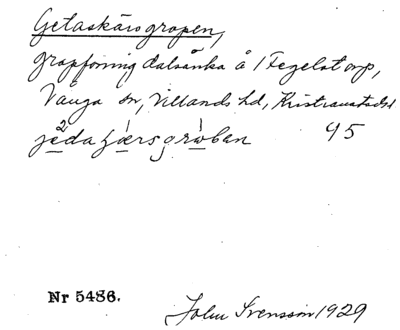 Getaskärsgropen,
gropformig dalsänka å 1 Tegelstorp,
Vånga sn, Villands hd, Kristianstads l
jedafjærsgråban 45
Nr 5486.
John Svensson 1929